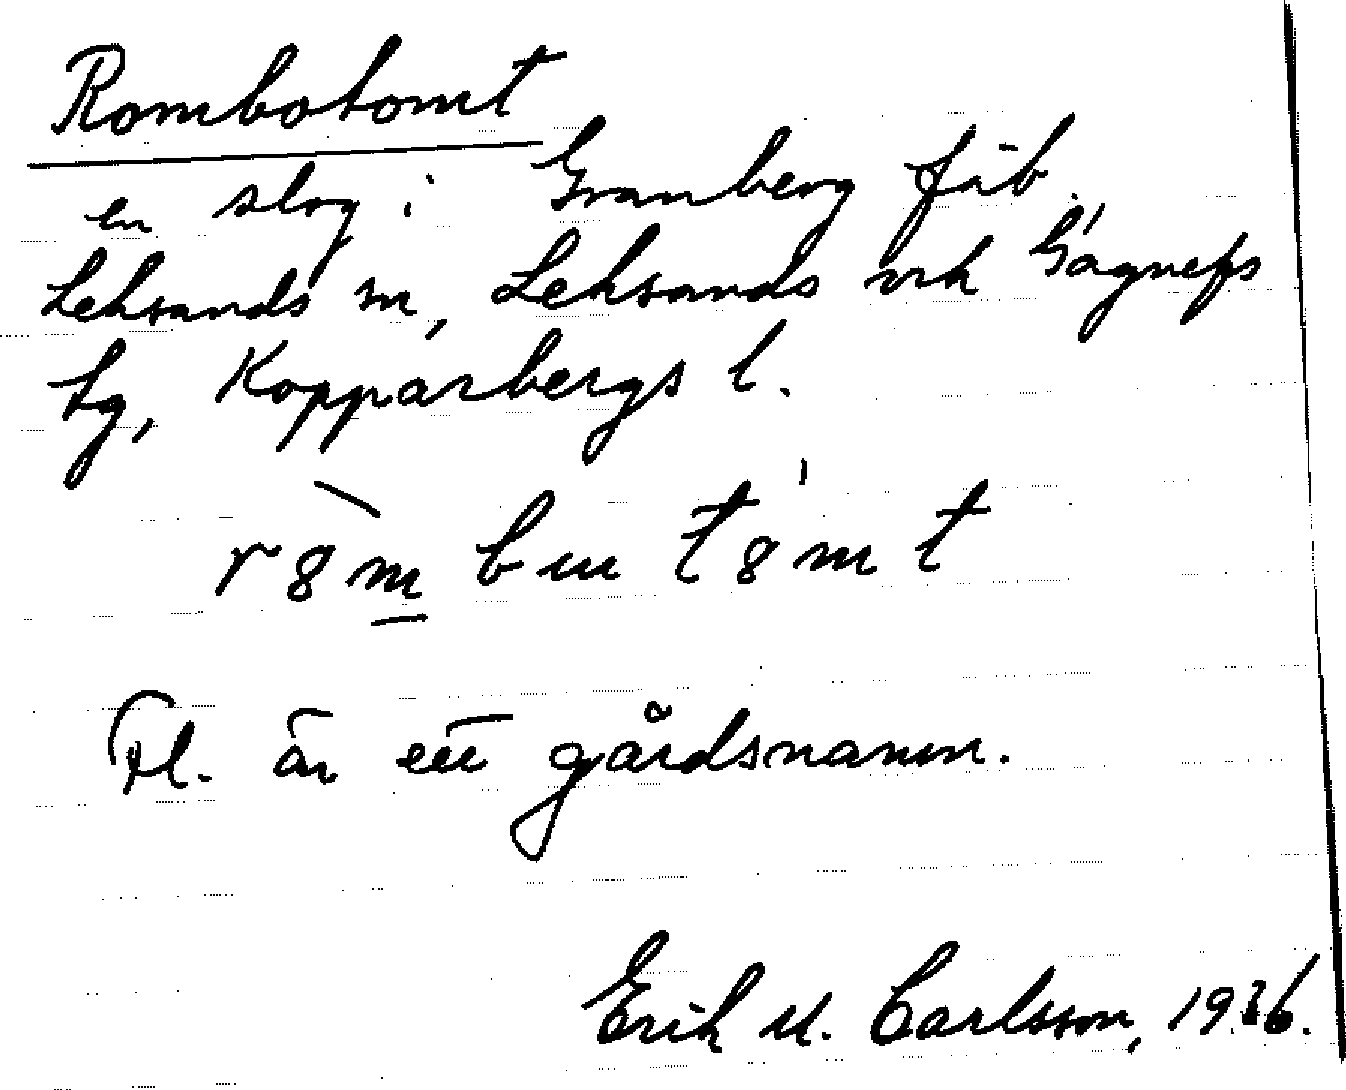 Rombotomt
en slog i Granberg fäb.
Leksands sn, Leksands och Gagnefs
tg, Kopparbergs l.
r8m bu t8mt
Fl. är ett gårdsnamn.
Erik M. Carlsson, 1936.